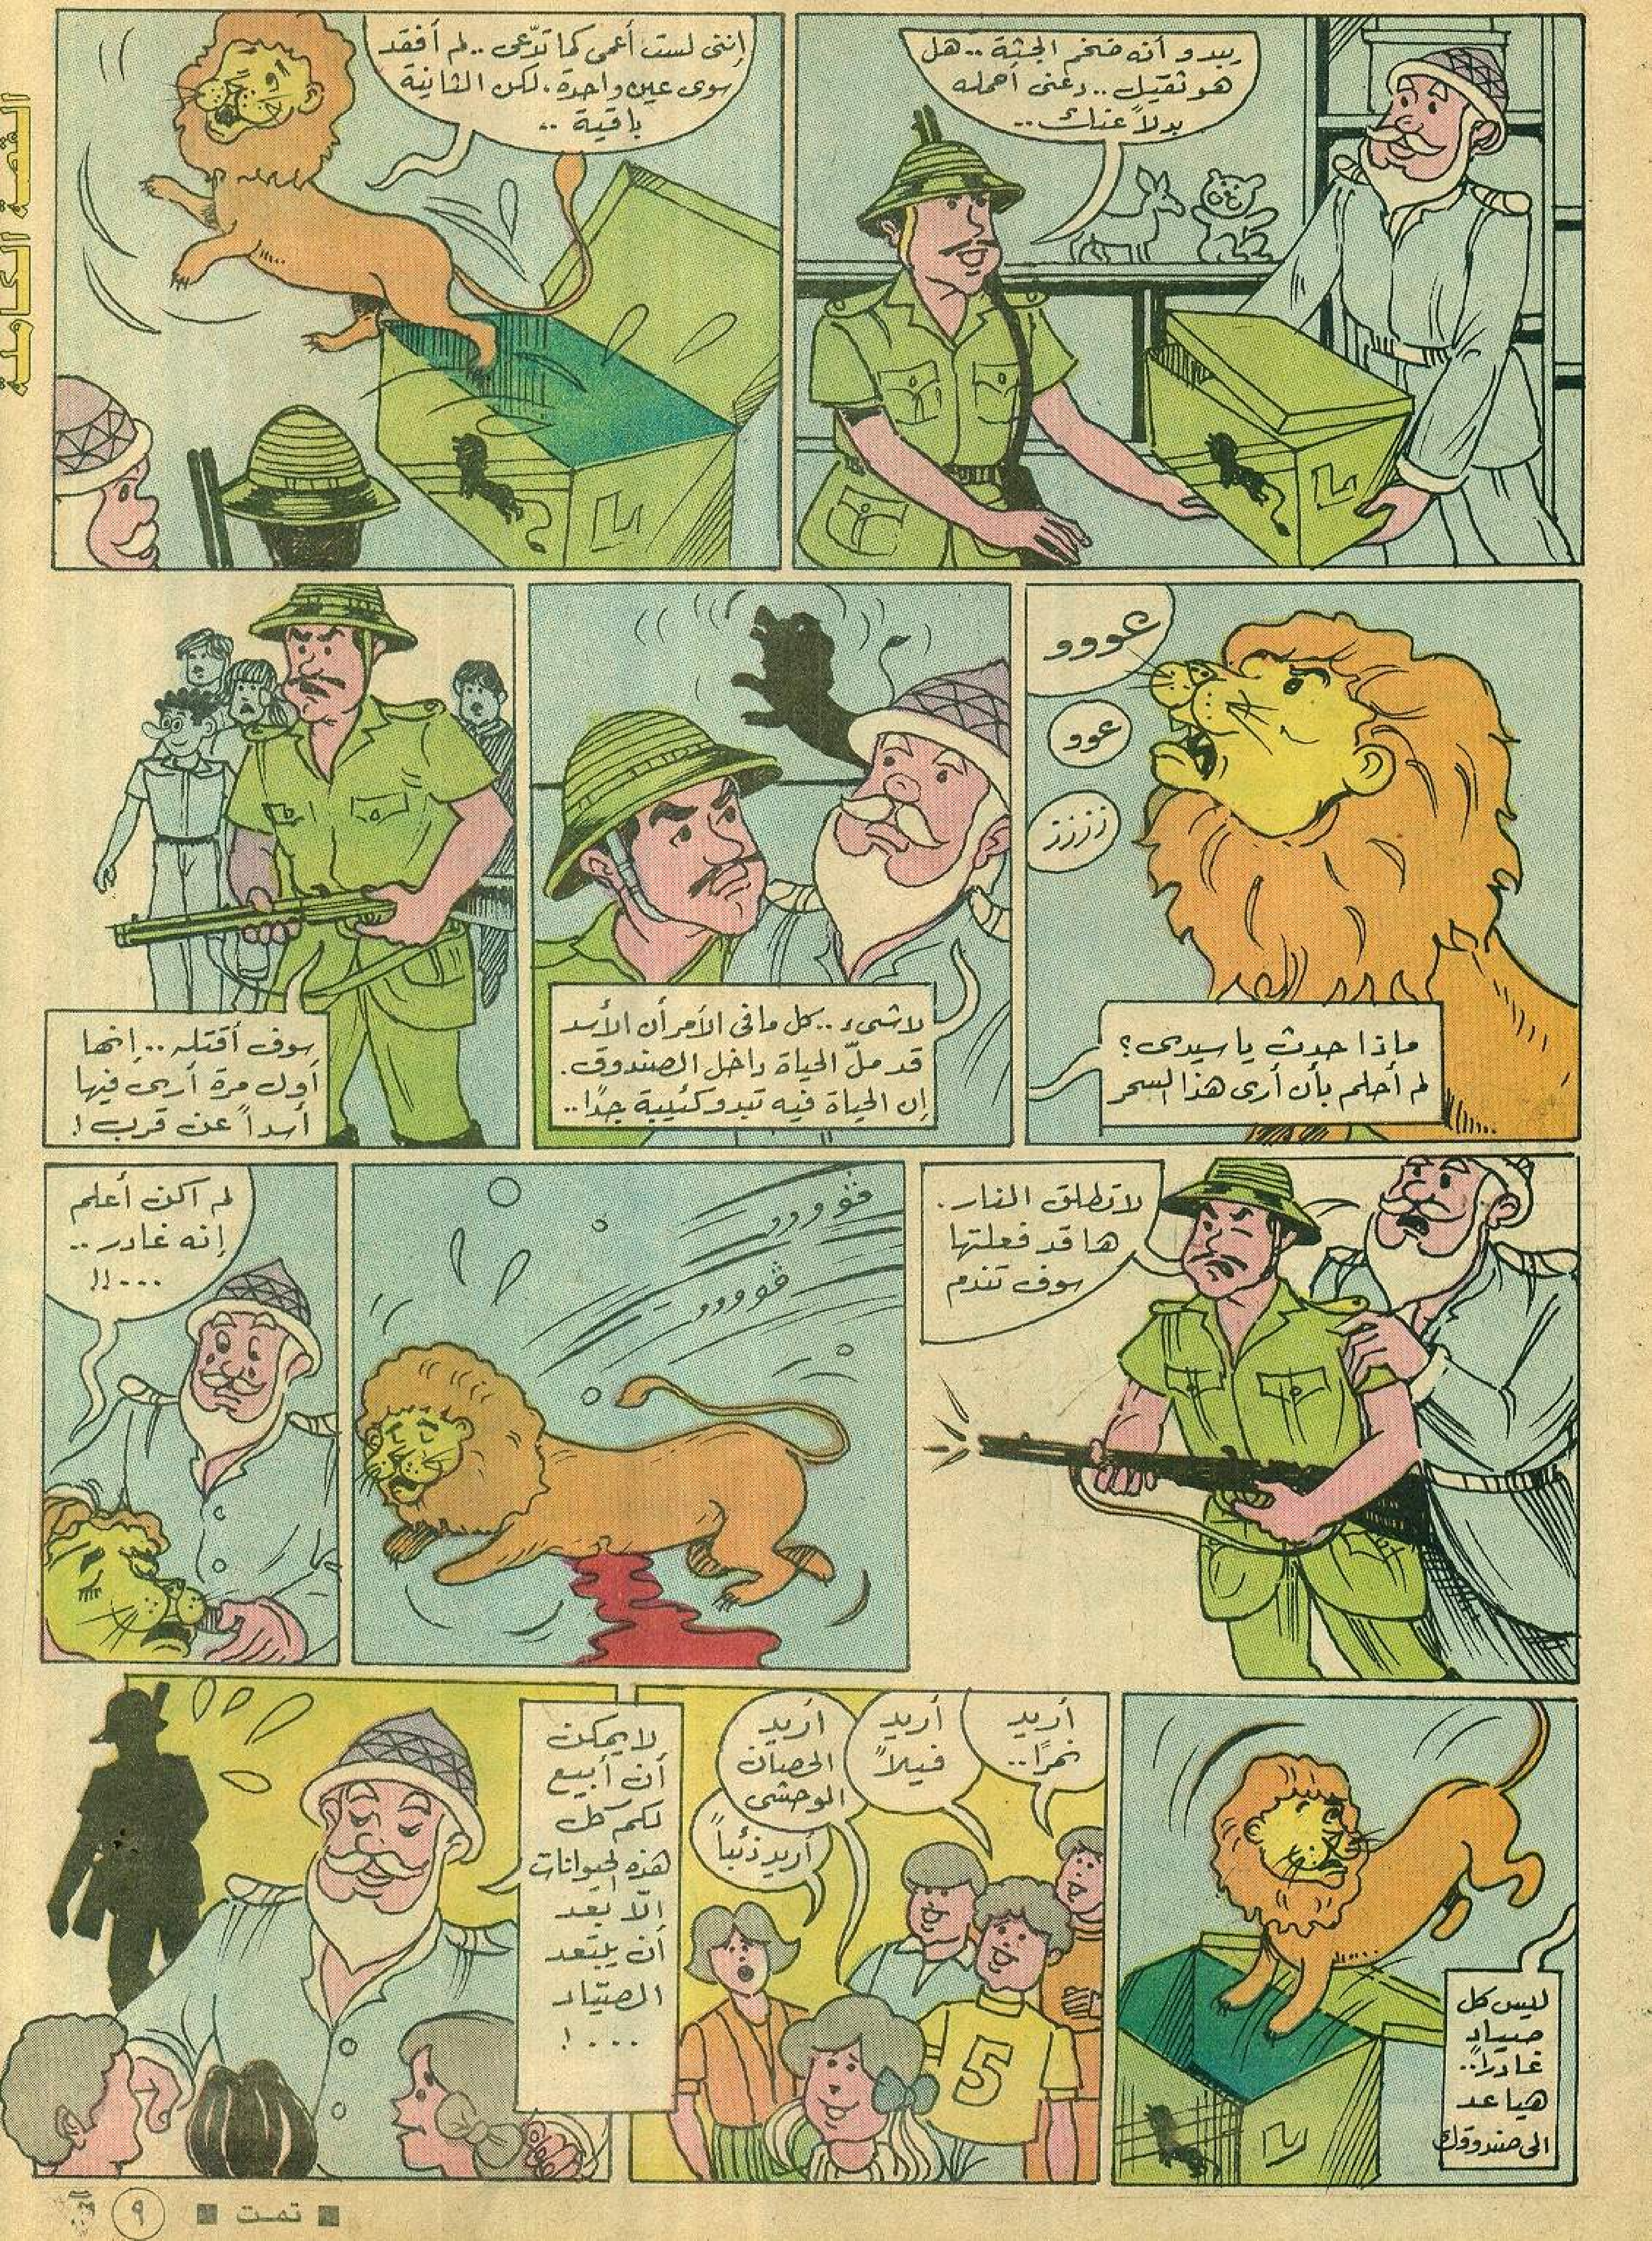 القصة الكاملة
يبدو أنه ضخم الجثة .. هل
هو ثقيل .. دعنى أحمله
بدلاً عنك ..
إننى لست أعمى كما تدّعى .. لم أفقد
سوى عين واحدة، لكن الثانية
باقية ..
عووو
عوو
زززز
ماذا حدث يا سيدى؟
لم أحلم بأن أرى هذا السحر
لا شىء .. كل ما فى الأمر أن الأسد
قد ملّ الحياة داخل الصندوق.
إن الحياة فيه تبدو كئيبة جدًا ..
سوف أقتله .. إنها
أول مرة أرى فيها
أسداً عن قرب !
لا تطلق النار .
ها قد فعلتها
سوف تندم
ڤووووو
ڤوووو
لم أكن أعلم
إنه غادر ..
...!!
ليس كل
صياد
غادراً..
هيا عد
الى صندوقك
ل
أريد
نمرًا ..
أريد
فيلاً
أريد
الحصان
الوحشى
أريد ذئباً
5
لا يمكن
أن أبيع
لكم كل
هذه الحيوانات
إلّا بعد
أن يبتعد
الصيّاد
...!
■ تمت ■
٩